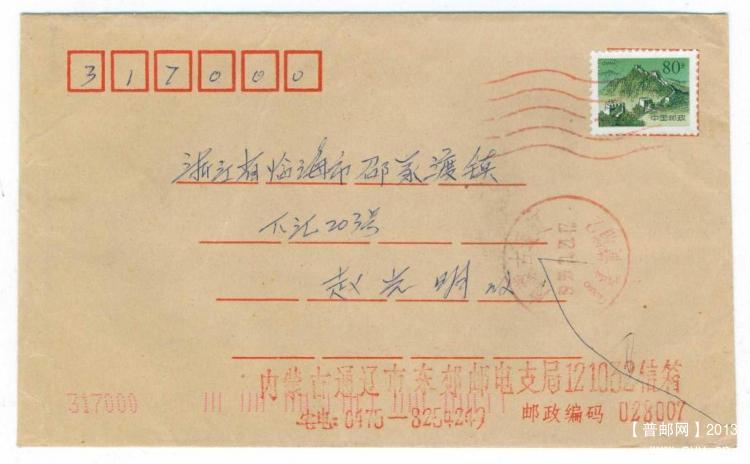 317000
80分
中国邮政
浙江省临海市邵家渡镇
下汇203号
赵光明收
内蒙古通辽市东郊邮电支局121032信箱
317000
宅电:0475—8254249 邮政编码 028007
【普邮网】2013